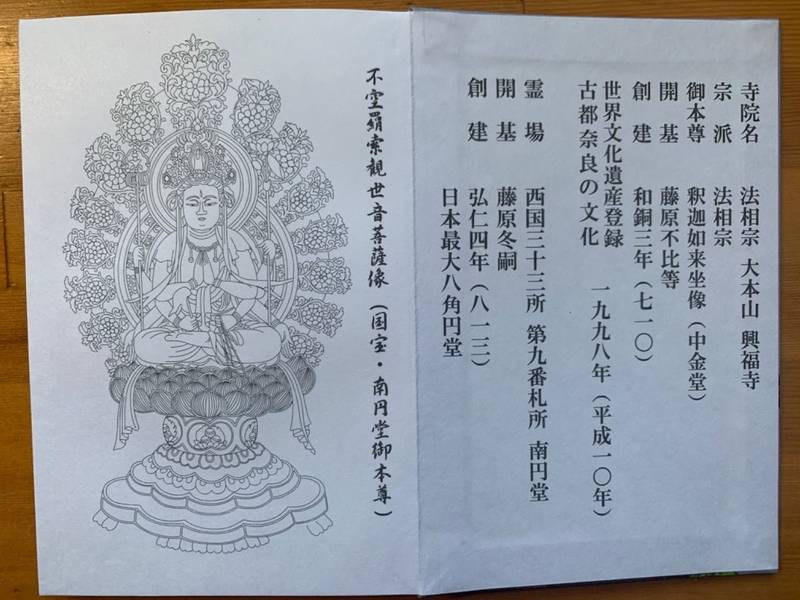 寺院名　法相宗 大本山 興福寺
宗　派　法相宗
御本尊　釈迦如来坐像（中金堂）
開　基　藤原不比等
創　建　和銅三年（七一〇）
世界文化遺産登録
古都奈良の文化　一九九八年（平成一〇年）
霊　場　西国三十三所 第九番札所 南円堂
開　基　藤原冬嗣
創　建　弘仁四年（八一三）
日本最大八角円堂
不空羂索観世音菩薩像（国宝・南円堂御本尊）